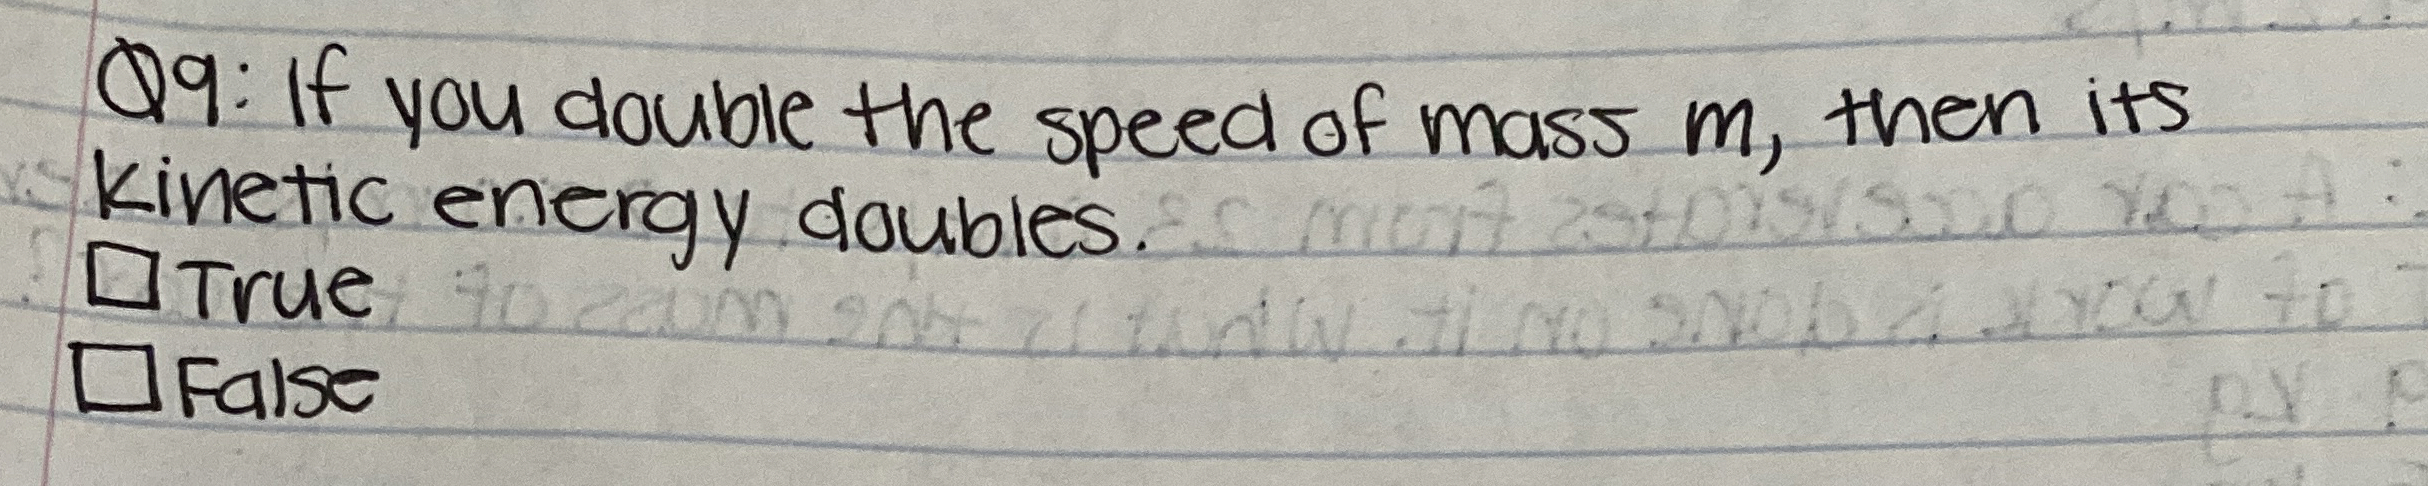 Q9: If you double the speed of mass m, then its
kinetic energy doubles.
□ True
□ False